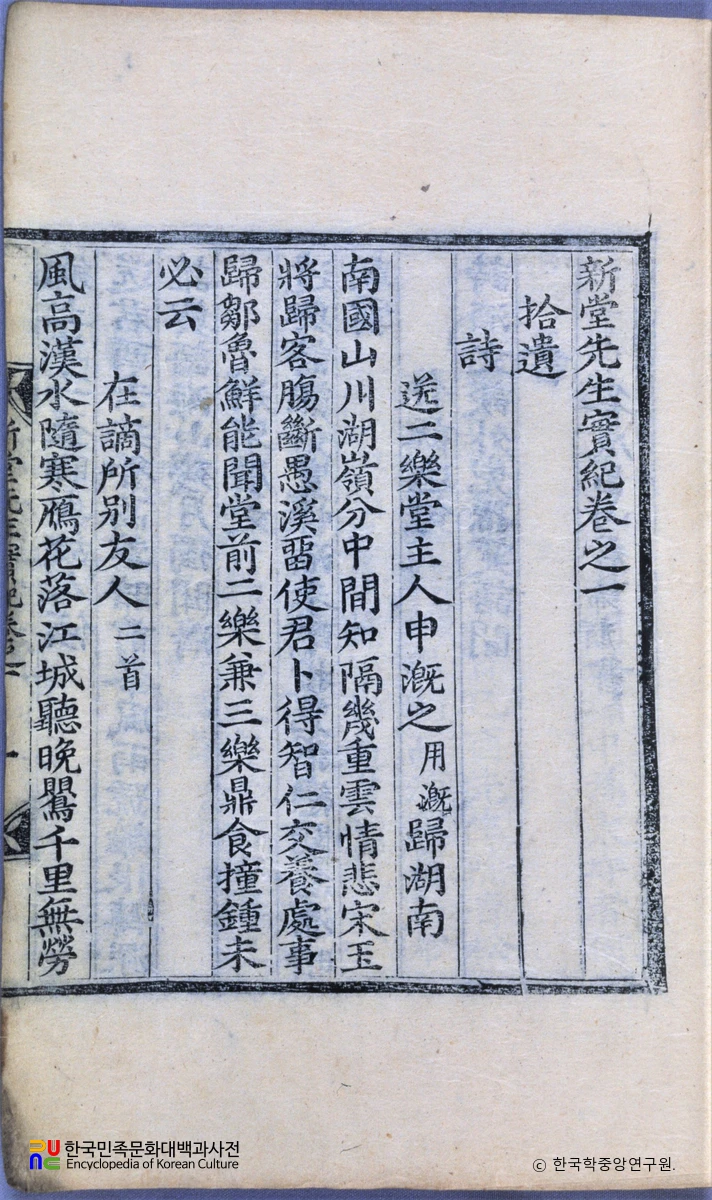 新堂先生實紀卷之一
拾遺
詩
送二樂堂主人申漑之用漑歸湖南
南國山川湖嶺分中間知隔幾重雲情悲宋玉
將歸客膓斷愚溪畱使君卜得智仁交養處事
歸鄒魯鮮能聞堂前二樂兼三樂鼎食撞鍾未
必云
在謫所別友人二首
風高漢水隨寒鴈花落江城聽晚鸎千里無勞
한국민족문화대백과사전
Encyclopedia of Korean Culture
© 한국학중앙연구원.